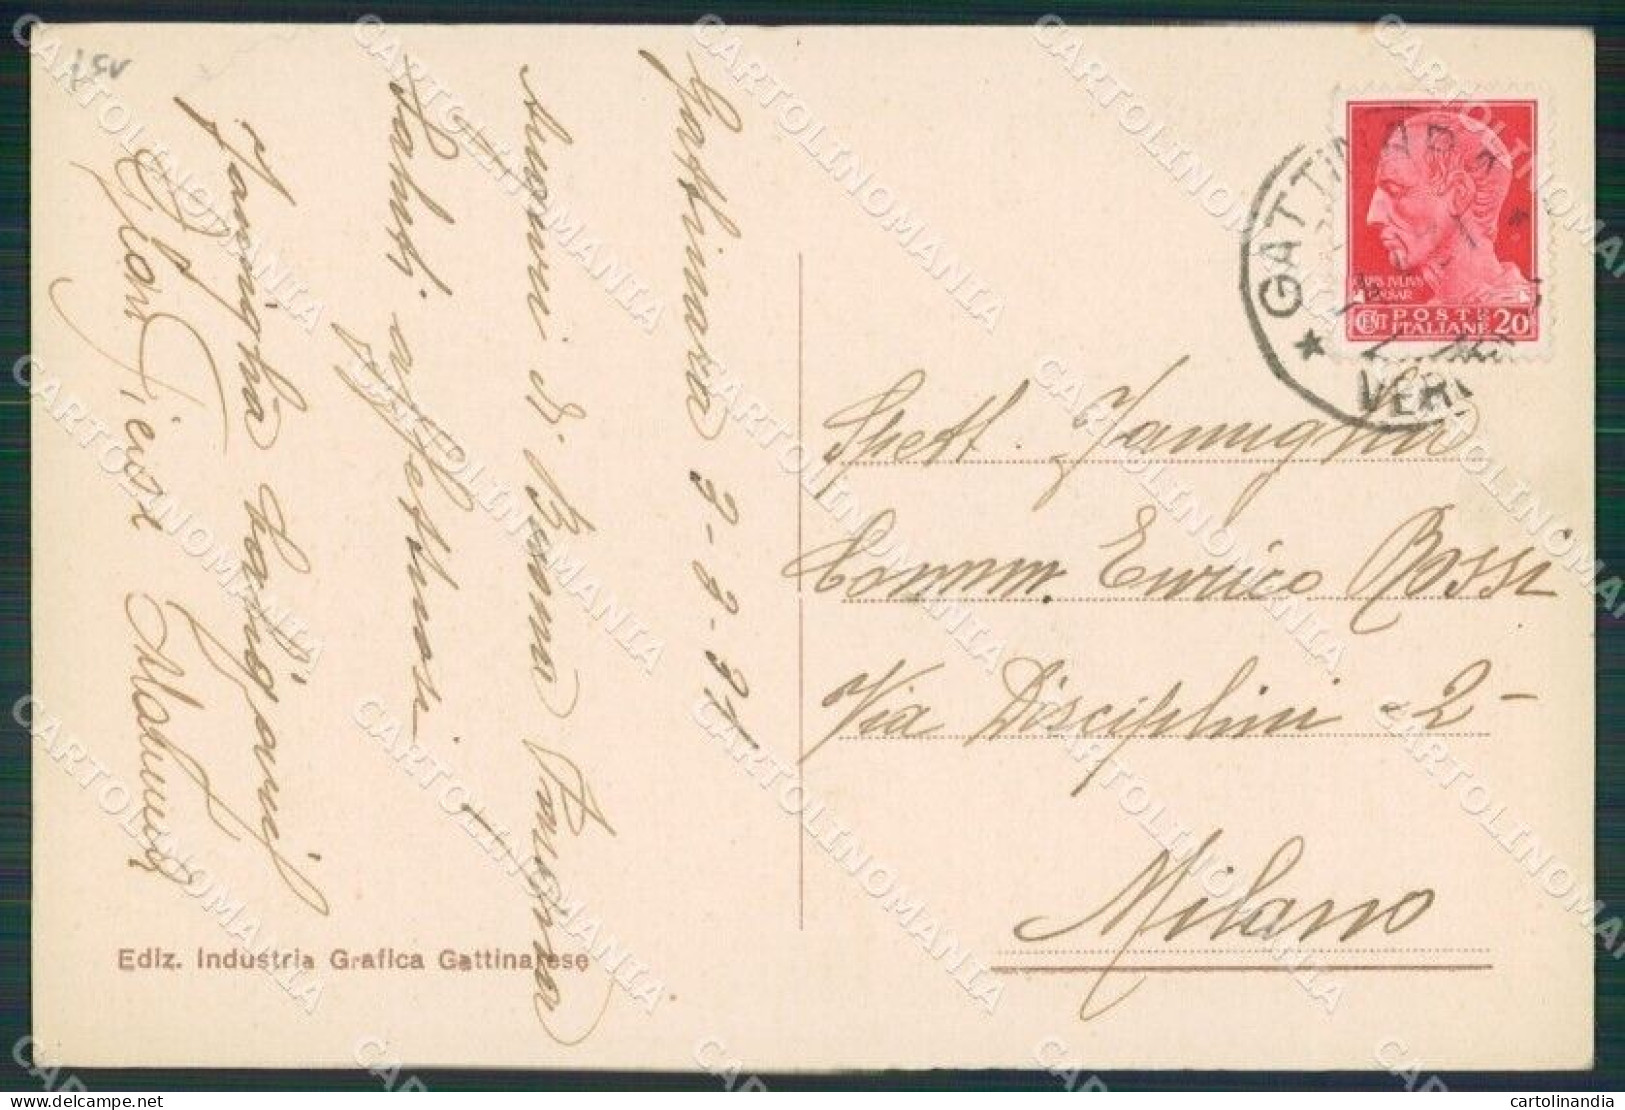 Gattinara 3-3-31
Auguri di Buona Pasqua
Saluti affettuosi
Famiglia
Ediz. Industria Grafica Gattinarese
GATTINARA
VERCELLI
CAIVS IVLIVS
CAESAR
CENT POSTE
ITALIANE 20
Spett. Famiglia
Comm. Enrico Rossi
Via Disciplini - 2 -
Milano
CARTOLINOMANIA
cartolinandia